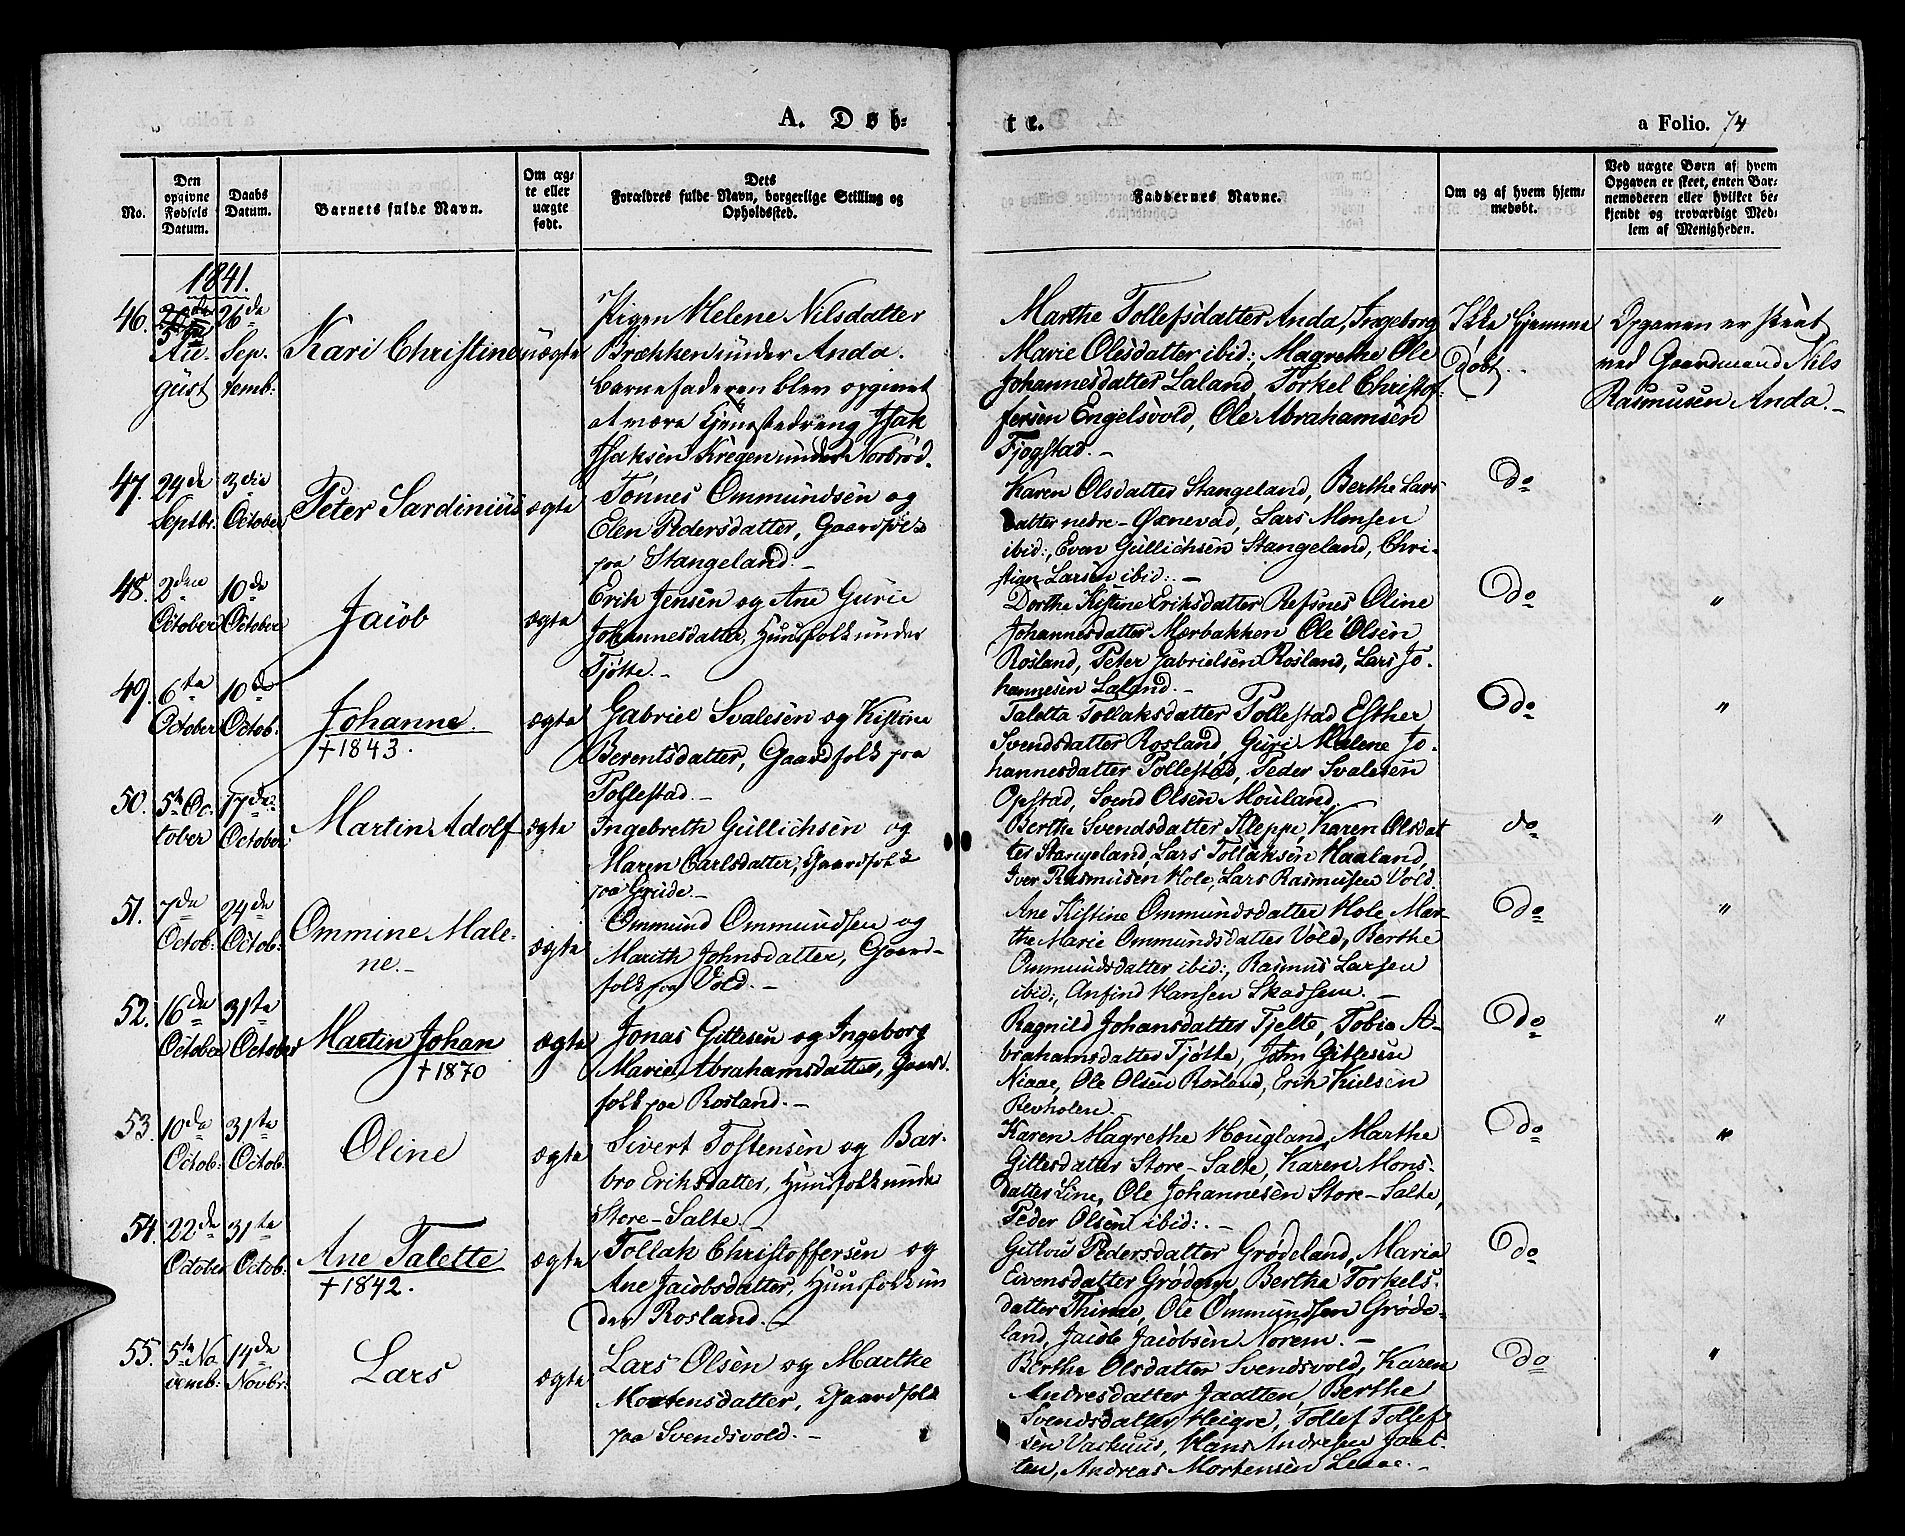 A. Døb-
te.
a Folio. 74
No.
Den opgivne Fødsels Datum.
Daabs Datum.
Barnets fulde Navn.
Om ægte eller uægte født.
Dets Forældres fulde Navn, borgerlige Stilling og Opholdssted.
Faddernes Navne.
Om og af hvem hjemmedøbt.
Ved uægte Børn af hvem Opgaven er skeet, enten Barnemoderen eller hvilket bekjendt og troværdigt Medlem af Menigheden.
1841.
46.
Au-
gust
26de
Sep-
temb:
Kari Christine
uægte
Pigen Helene Nilsdatter
Brækken under Anda.
Barnefaderen blev opgivet
at være Tjenestedreng Isak
Isaksen Kregen under Norbrød.
Marthe Tollefsdatter Anda, Ingeborg
Marie Olesdatter ibid:, Magrethe Ole
Johannesdatter Laland, Torkel Christof-
fersen Engelsvold, Ole Abrahamsen
Fjogstad.-
Ikke hjemme
døbt.
Opgaven er skeet
ved Gaardmand Nils
Rasmusen Anda.-
47.
24de
Septbr.
3die
October
Peter Sardinius
ægte
Tönnes Ommundsen og
Elen Pedersdatter, Gaardfolk
paa Stangeland.-
Karen Olsdatter Stangeland, Berthe Lars
datter nedre-Øxnevad, Lars Monsen
ibid:, Even Gullichsen Stangeland, Chri-
stian Larsen ibid:.-
do
48.
2den
October
10de
October
Jacob
ægte
Erik Jensen og Ane Gurie
Johannesdatter, Huusfolk under
Tjøtte.-
Dorthe Kistine Eriksdatter Refsnes Oline
Johannesdatter Mærbakken Ole Olsen
Rosland, Peter Gabrielsen Rosland, Lars Jo-
hannesen Laland.-
do
"
49.
6te
October
10de
Octob:
Johanne.
†1843.
ægte
Gabriel Svalesen og Kistine
Berentsdatter, Gaardfolk paa
Tollestad.-
Taletta Tollaksdatter Tollestad Esther
Svendsdatter Rosland, Guri Malene Jo-
hannesdatter Tollestad, Peder Svalesen
Opstad, Svend Olsen Mouland.
do
"
50.
5te Oc-
tober
17de
October
Martin Adolf
ægte
Ingebreth Gullichsen og
Maren Carlsdatter, Gaardfolk
paa Grude.-
Berthe Svendsdatter Kleppe, Karen Olsdat
ter Stangeland, Lars Tollaksen Haaland,
Iver Rasmusen Hole, Lars Rasmusen Vold.
do
"
51.
7de
Octob:
24de
Octob:
Ommine Male-
ne.-
ægte
Ommund Ommundsen og
Marith Johnsdatter, Gaard-
folk paa Vold.-
Ane Kistine Ommundsdatter Hole Mar-
the Marie Ommundsdatter Vold, Berthe
Ommundsdatter ibid:, Rasmus Larsen
ibid:, Anfind Hansen Skadsem.-
do
"
52.
16de
October
31te
October
Martin Johan
†1870
ægte
Jonas Gitlesen og Ingeborg
Marie Abrahamsdatter, Gaard-
folk paa Rosland.-
Ragnild Johansdatter Tjelte, Tobia A-
brahamsdatter Tjøtte, John Gitlesen
Niaae, Ole Olsen Rosland, Erik Kielsen
Revholen.
do
"
53.
10de
Octob:
31te
Octob.
Oline
ægte
Sivert Tostensen og Bar-
bro Eriksdatter, Huusfolk under
Store-Salte.-
Karen Magrethe Hougland, Marthe
Gitlesdatter Store-Salte, Karen Mons-
datter Line, Ole Johannesen Store-Salte,
Peder Olsen ibid:.-
do
"
54.
22de
October
31te
Octob:
Ane Talette
†1842.
ægte
Tollak Christoffersen og
Ane Jacobsdatter, Huusfolk un
der Rosland.-
Pedersdatter Grødeland, Maria
Eivensdatter Grødem, Berthe Torkels-
datter Thime, Ole Ommundsen Grøde-
land, Jacob Jacobsen Norem.-
do
55.
5te No
vemb:
14de
Novbr:
Lars
ægte
Lars Olsen og Marthe
Mortensdatter, Gaardfolk
paa Svendsvold.-
Berthe Olsdatter Svendsvold, Karen
Andresdatter Jaatten, Berthe
Svendsdatter Heigre, Tollef Tollef-
sen Vashuus, Hans Andresen Jaat-
ten, Andreas Mortensen
do
"